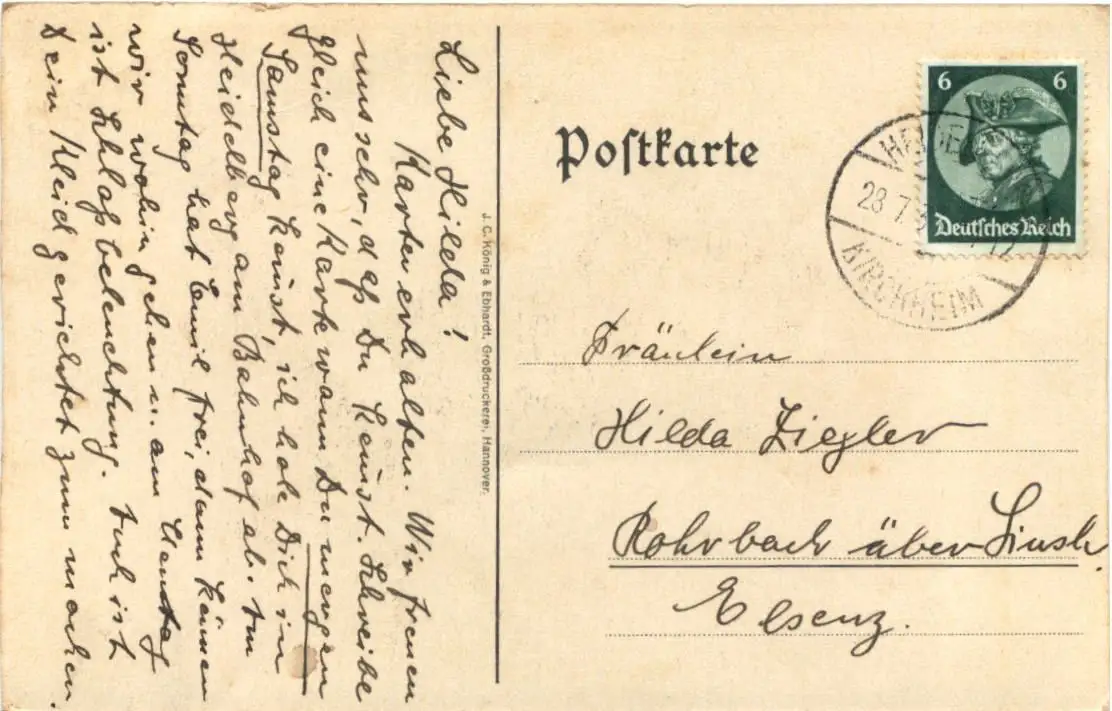 Liebe Hilda!
Karte erhalten. Wir freuen
uns sehr, daß Du kommst. Schreibe
gleich eine Karte wann Du morgen
Samstag komst, ich hole Dich in
Heidelberg am Bahnhof ab. Im
Sonntag hat Emil frei, dann können
wir wohin gehen u. am
ist Schloßbeleuchtung. Auch ist
Dein Kleid gerichtet zum machen.
J. C. König & Ebhardt, Großdruckerei, Hannover.
Postkarte
6 6
Deutsches Reich
HEIDE
28 7 3 12
KIRCHHEIM
Fräulein
Hilda Ziegler
Rohrbach über Sinsh.
Elsenz.